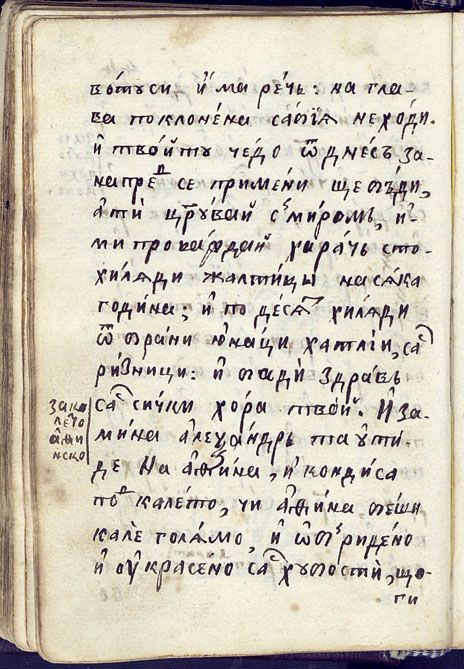 во́туси и҆́ма ре́чь: на гла-
ва поклоне́на са́бїѧ не хо́ди.
и҆ тво́йту че́до ѿ дне́съ за-
напре́д се примѣни ще бъ́ди,
а҆ тѝ црⷭ҇ꙋвай с миромъ, и҆
ми прова́ждай хара́чь сто-
хи́лѧди жлати́цы на сѧ́ка
годи́на; и҆ по десѧ́т хи́лѧди
ѿбрани ю҆на́ци ха́тлїи, са
ри́зници: и҆ бадѝ здра́въ
са си́чки хо́ра твой. И҆ за-
мина а҆леѯа́ндръ та ѹ҆ти-
де на а҆ѳи́на, и҆ кондиса
под кале́то, чи а҆ѳи́на бе́ши
калѐ голѧ́мо, и҆ ѡ҆гриде́но
и҆ ѹ҆красе́но са ху́бостѝ, що-
ги
зака
ле́то
а҆ѳи
нско